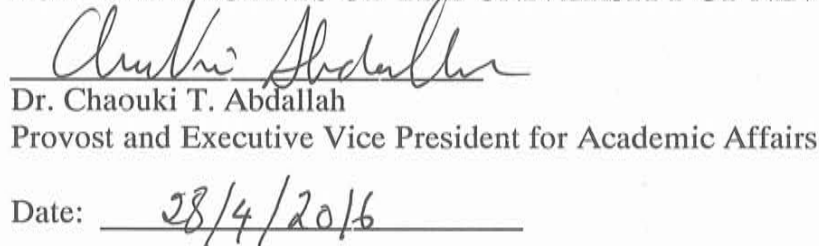 Chaouki Abdallah
Dr. Chaouki T. Abdallah
Provost and Executive Vice President for Academic Affairs
Date: 28/4/2016